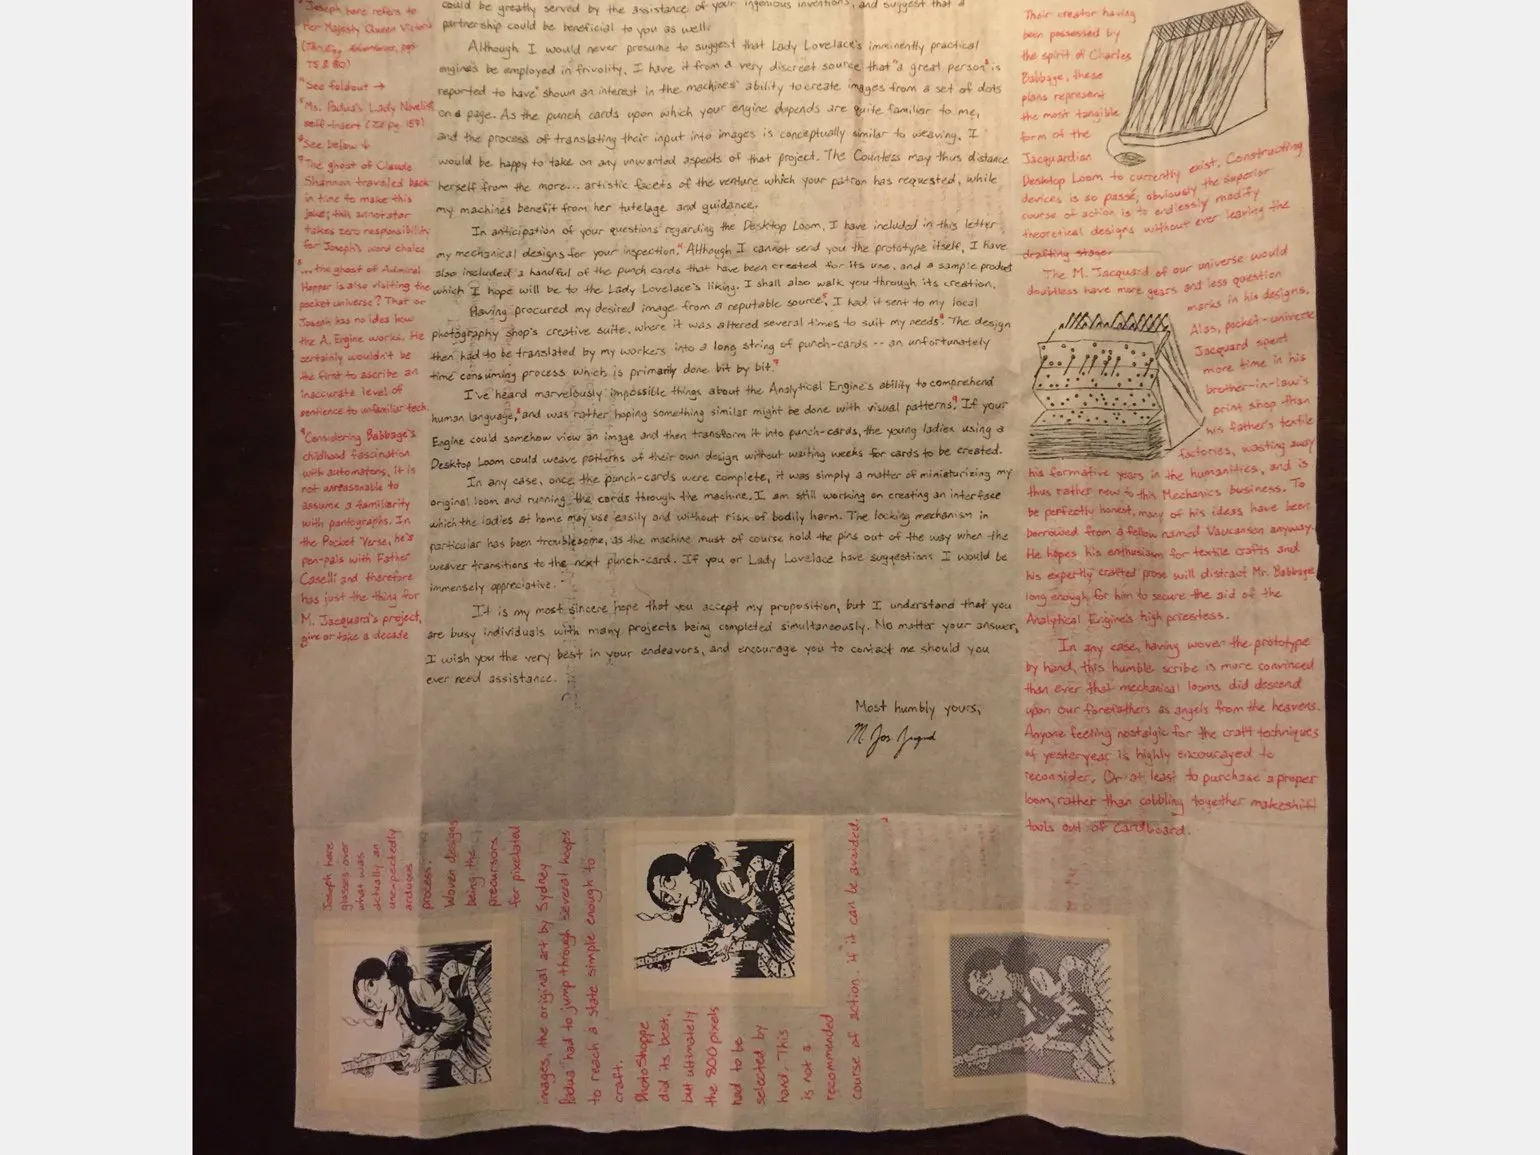 Joseph here refers to
Her Majesty Queen Victoria
75 & 80)
See foldout →
Ms. Padua's Lady Novelist
self-insert (
See below ↓
The ghost of Claude
Shannon traveled back
in time to make this
joke; this annotator
takes zero responsibility
for Joseph's word choice
... the ghost of Admiral
Hopper is also visiting the
pocket universe? That or
Joseph has no idea how
the A. Engine works. He
certainly wouldn't be
the first to ascribe an
inaccurate level of
sentience to unfamiliar tech.
Considering Babbage's
childhood fascination
with automatons, it is
not unreasonable to
assume a familiarity
with pantographs. In
the Pocket Verse, he's
pen-pals with Father
Caselli and therefore
has just the thing for
M. Jacquard's project,
give or take a decade
could be greatly served by the assistance of your ingenious inventions, and suggest that a
partnership could be beneficial to you as well.
Although I would never presume to suggest that Lady Lovelace's imminently practical
engines be employed in frivolity, I have it from a very discreet source that "a great person" is
reported to have shown an interest in the machines' ability to create images from a set of dots
on a page. As the punch cards upon which your engine depends are quite familiar to me,
and the process of translating their input into images is conceptually similar to weaving, I
would be happy to take on any unwanted aspects of that project. The Countess may thus distance
herself from the more... artistic facets of the venture which your patron has requested, while
my machines benefit from her tutelage and guidance.
In anticipation of your questions regarding the Desktop Loom, I have included in this letter
my mechanical designs for your inspection.⁴ Although I cannot send you the prototype itself, I have
also included a handful of the punch cards that have been created for its use, and a sample product
which I hope will be to the Lady Lovelace's liking. I shall also walk you through its creation.
Having procured my desired image from a reputable source⁵, I had it sent to my local
photography shop's creative suite, where it was altered several times to suit my needs⁶. The design
then had to be translated by my workers into a long string of punch-cards -- an unfortunately
time consuming process which is primarily done bit by bit.⁷
I've heard marvelously impossible things about the Analytical Engine's ability to comprehend
human language,⁸ and was rather hoping something similar might be done with visual patterns.⁹ If your
Engine could somehow view an image and then transform it into punch-cards, the young ladies using a
Desktop Loom could weave patterns of their own design without waiting weeks for cards to be created.
In any case, once the punch-cards were complete, it was simply a matter of miniaturizing my
original loom and running the cards through the machine. I am still working on creating an interface
which the ladies at home may use easily and without risk of bodily harm. The locking mechanism in
particular has been troublesome, as the machine must of course hold the pins out of the way when the
weaver transitions to the next punch-card. If you or Lady Lovelace have suggestions I would be
immensely appreciative.
It is my most sincere hope that you accept my proposition, but I understand that you
are busy individuals with many projects being completed simultaneously. No matter your answer,
I wish you the very best in your endeavors, and encourage you to contact me should you
ever need assistance.
Most humbly yours,
Their creator having
been possessed by
the spirit of Charles
Babbage, these
plans represent
the most tangible
form of the
Jacquardian
Desktop Loom to currently exist. Constructing
devices is so passé, obviously the superior
course of action is to endlessly modify
theoretical designs without ever leaving the
drafting stage.
The M. Jacquard of our universe would
doubtless have more gears and less question
marks in his designs.
Alas, pocket-universe
Jacquard spent
more time in his
brother-in-law's
print shop than
his father's textile
factories, wasting away
his formative years in the humanities, and is
thus rather new to this Mechanics business. To
be perfectly honest, many of his ideas have been
borrowed from a fellow named Vaucanson anyway.
He hopes his enthusiasm for textile crafts and
his expertly crafted prose will distract Mr. Babbage
long enough for him to secure the aid of the
Analytical Engine's high priestess.
In any case, having woven the prototype
by hand, this humble scribe is more convinced
than ever that mechanical looms did descend
upon our forefathers as angels from the heavens.
Anyone feeling nostalgic for the craft techniques
of yesteryear is highly encouraged to
reconsider. Or at least to purchase a proper
loom, rather than cobbling together makeshift
tools out of cardboard.
Joseph here
glasses over
what was
actually an
unexpectedly
arduous
process.
Woven designs
being the
precursors
for pixelated
images, the original art by Sydney
Padua had to jump through several hoops
to reach a state simple enough to
craft.
PhotoShoppe
did its best,
but ultimately
the 800 pixels
had to be
selected by
hand. This
is not a
recommended
course of action, if it can be avoided.